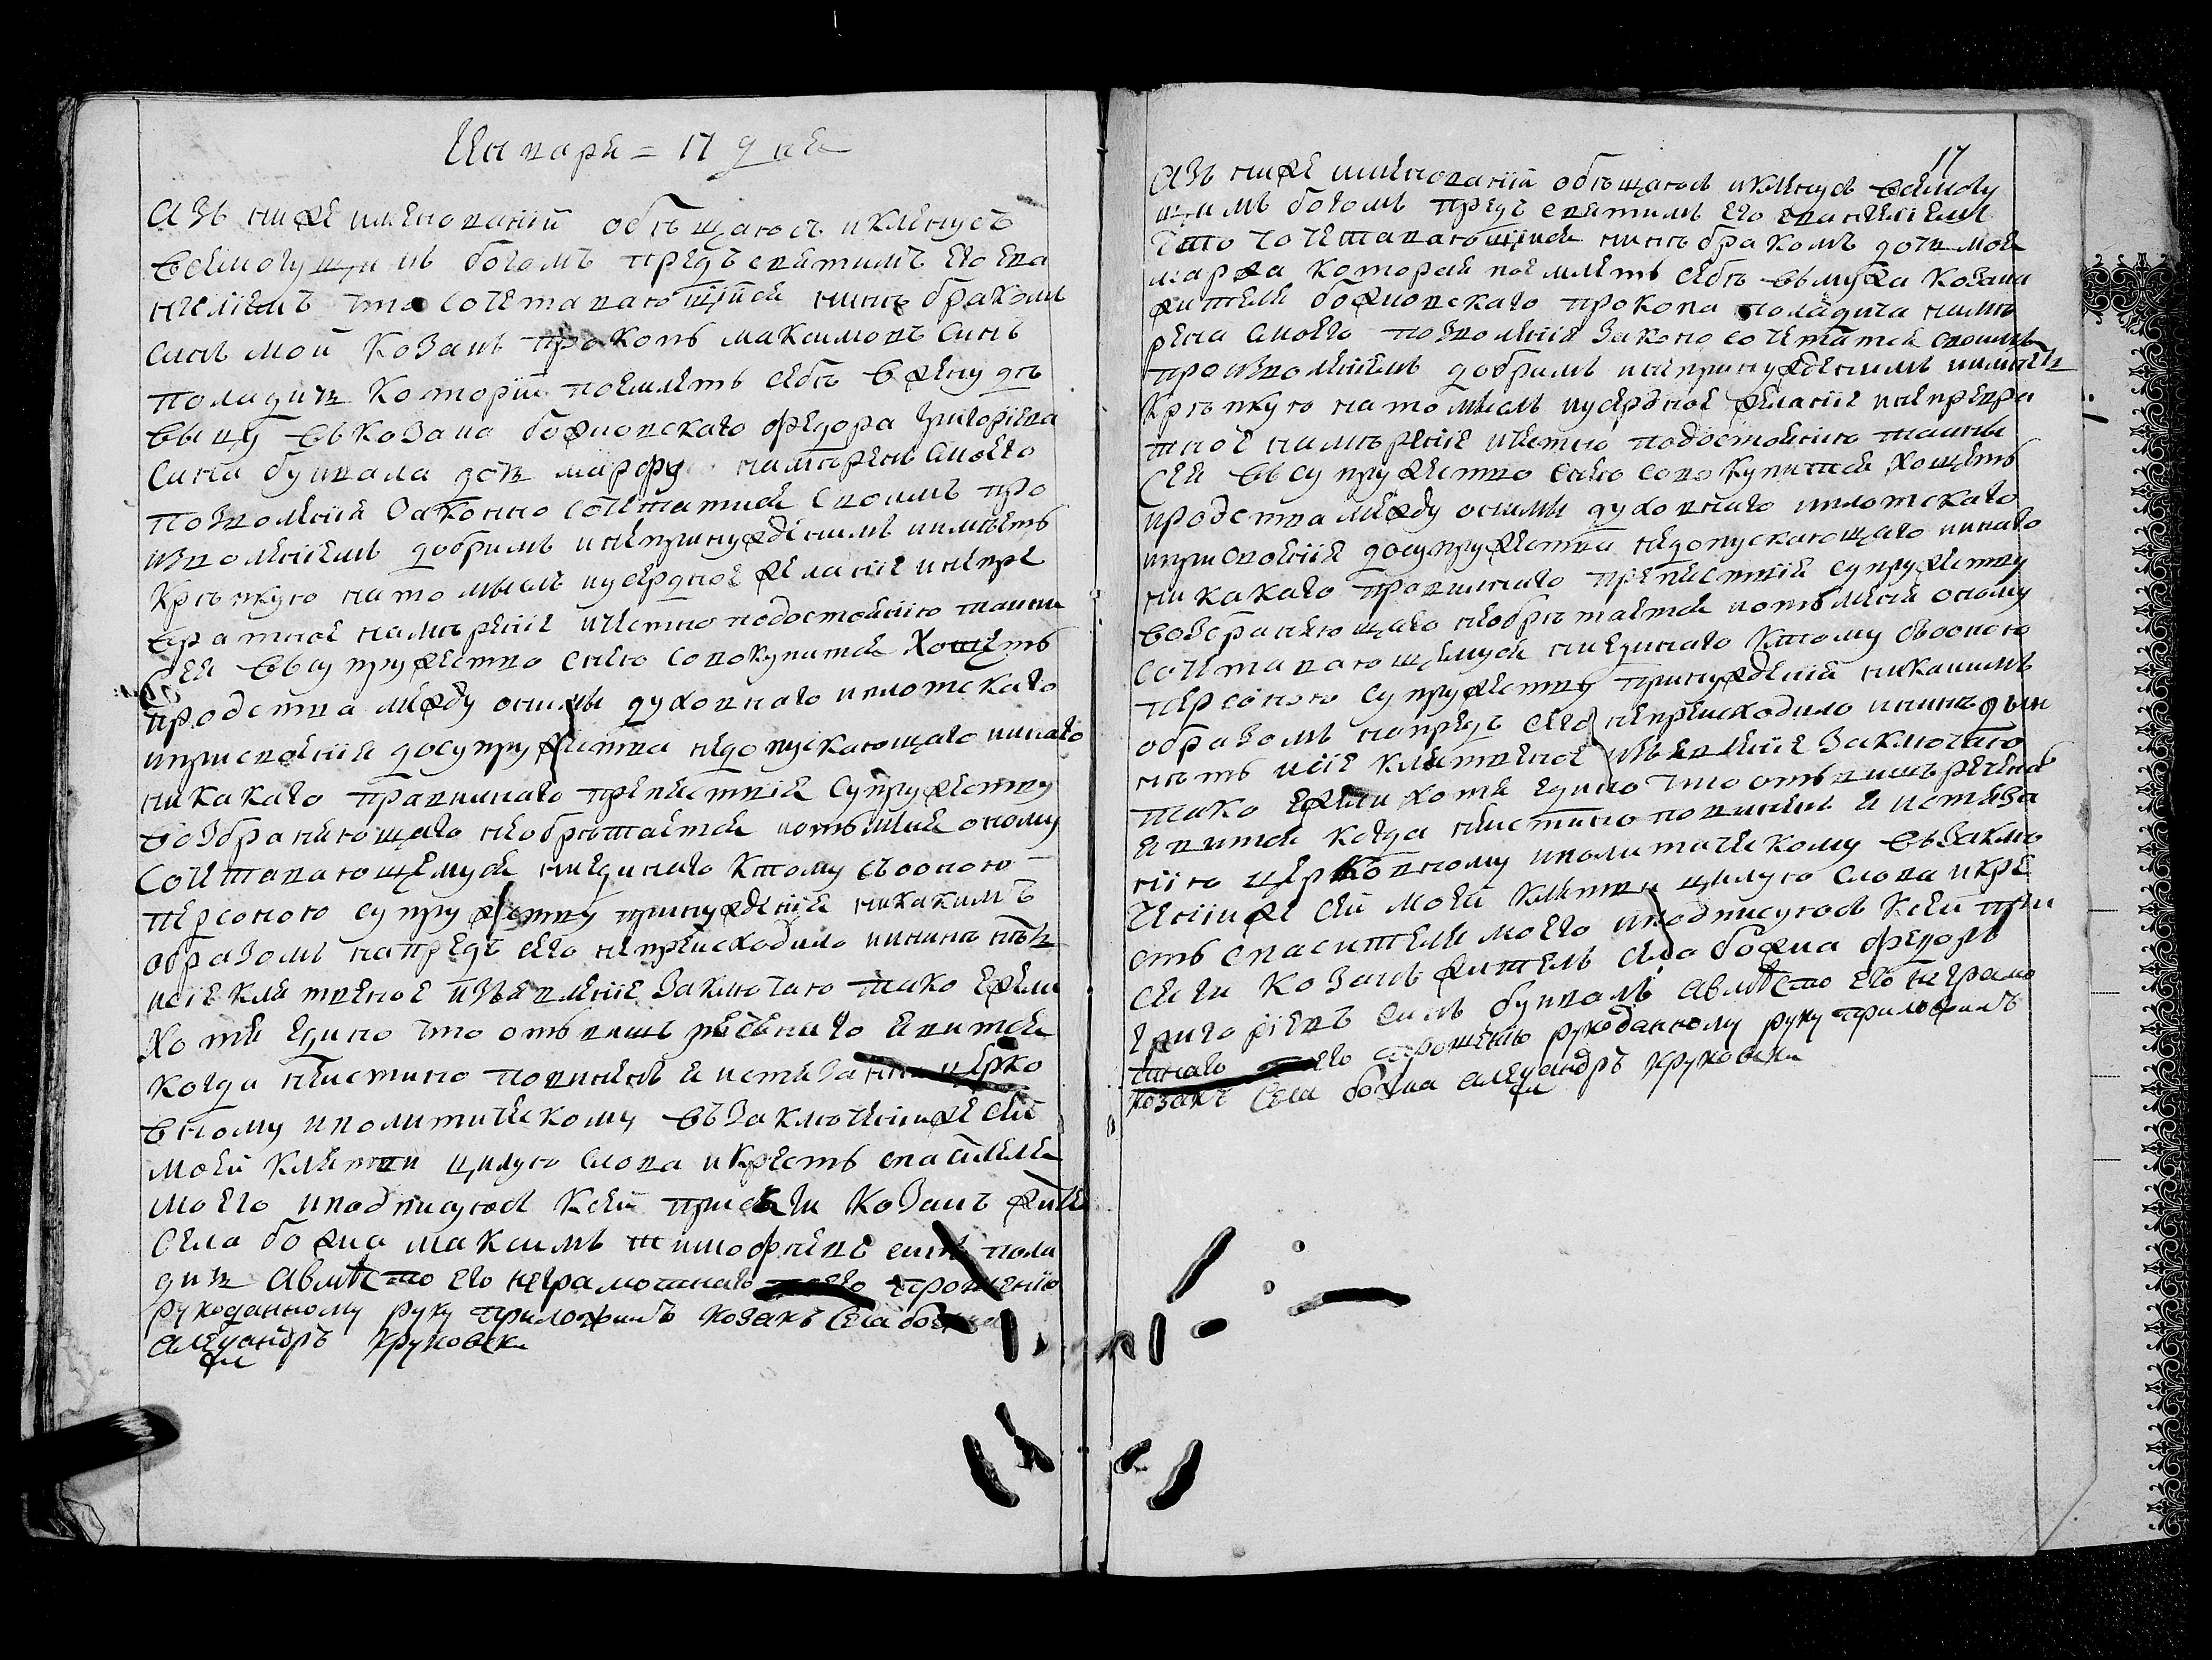 Генваря = 17 дня
Азъ ниже именованій обѣщаюсъ и кленусъ
всемогущимъ богомъ предъ святимъ его ева
нгелиемъ что сочетавающійся нинѣ бракомъ
синъ мой козакъ прокопъ максимовъ синъ
поладичъ которій поемлетъ себѣ в жену дѣ
вицу въ козака божковскаго федора григориева
сина бувала дочь марфу намѣренъ с моего
позволенія законно сочетатися своимъ про
изволениемъ добримъ и непринужденимъ и имѣетъ
крѣпкую на то мысль и усердное желаніе и непре
вратное намѣреніе и честно подостоянію тайни
сея въ супружество с нею совокупится хощетъ
иродства между оними духовнаго и плотскаго
и присвоенія до супружества недопускающаго и инаго
никакаго правилнаго препятствія супружеству
возбраняющаго необрѣтается и отъ мене оному
сочетавающемуся ниединаго к тому съ оною
персоною супружеству принужденія никакимъ
образомъ напредъ сего непроисходило и нинѣ нѣтъ
и сіе клятвеное изявленіе заключаю тако ежели
хотя едино что отъ више реченихъ явится
когда неистинно повиненъ я истязанию церко
вному и политическому въ заключеніи же сей
моей клятви цилую слова и крестъ спасителя
моего и подписуюся к сей присяги козакъ жител
села божка максимъ тимофѣевъ синъ пола
дичъ а вмѣсто его неграмотнаго по его прошению
рукоданному руку приложилъ козакъ села божка
александръ круковски
17
Азъ ниже именованій обѣщаюсь и кленусь всемогу
щимъ богомъ предъ святимъ его евангелиемъ
что сочетавающаяся нинѣ бракомъ дочъ моя
марфа которая поемлетъ себѣ въ мужа козака
жителя божковскаго прокопа поладича намѣ
рена с моего позволенія законо сочетатся своимъ
произволениемъ добримъ и непринужденимъ и имѣетъ
крѣпкую на то мысль и усердное желаніе и непревра
тное намѣреніе и честно подостоянію тайни
сея въ супружество с нею совокупится хощетъ
иродства между оними духовнаго и плотскаго
и присвоенія до супружества недопускающаго и инаго
никакаго правилнаго препятствія супружеству
возбраняющаго необрѣтается и отъ мене оному
сочетавающемуся ниединаго к тому съ оною
персоною супружеству принужденія никакимъ
образомъ напредъ сего непроисходило и нинѣ
нѣтъ и сіе клятвеное изявленіе заключаю
тако ежели хотя едино что отъ више речених
явится когда неистинно повиненъ я истяза
нію церковному и политическому въ заклю
ченіи же сей моей клятви цилую слова и кре
стъ спасителя моего и подписуюсь к сей при
сяги козакъ житель села божка федоръ
григориевъ синъ буваль а вмѣсто его неграмо
тнаго по его прошению рукоданному руку приложилъ
козакъ села божка александръ круковски